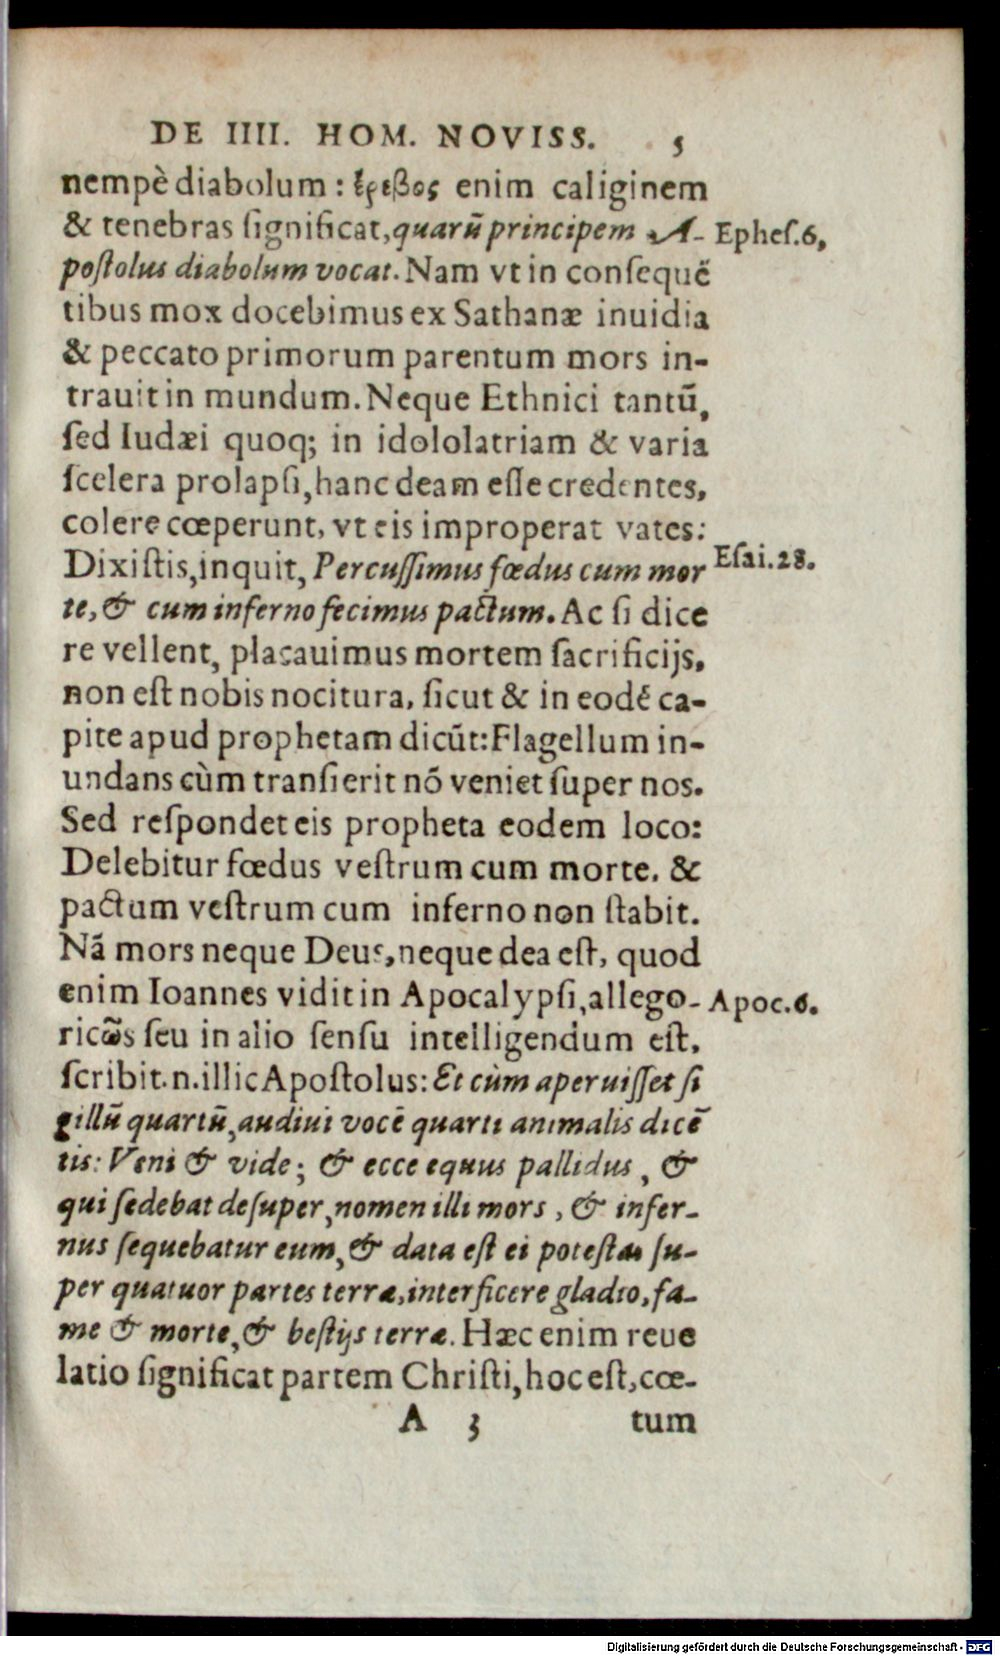 DE IIII. HOM. NOVISS. 5
nempè diabolum : ἔρεβος enim caliginem
& tenebras ſignificat, quarũ principem A- Epheſ.6,
poſtolus diabolum vocat. Nam vt in conſequẽ
tibus mox docebimus ex Sathanæ inuidia
& peccato primorum parentum mors in-
trauit in mundum. Neque Ethnici tantũ,
ſed Iudæi quoq; in idololatriam & varia
ſcelera prolapſi, hanc deam eſſe credentes,
colere cœperunt, vt eis improperat vates:
Dixiſtis, inquit, Percuſſimus fœdus cum mor Eſai.28.
te, & cum inferno fecimus pactum. Ac ſi dice
re vellent, placauimus mortem ſacrificijs,
non eſt nobis nocitura, ſicut & in eodẽ ca-
pite apud prophetam dicũt: Flagellum in-
undans cùm tranſierit nõ veniet ſuper nos.
Sed reſpondet eis propheta eodem loco:
Delebitur fœdus veſtrum cum morte, &
pactum veſtrum cum inferno non ſtabit.
Nã mors neque Deus, neque dea eſt, quod
enim Ioannes vidit in Apocalypſi, allego- Apoc.6.
ricῶs ſeu in alio ſenſu intelligendum eſt,
ſcribit.n.illic Apoſtolus: Et cùm aperuiſſet ſi
gillũ quartũ, audiui vocẽ quarti animalis dicẽ
tis: Veni & vide; & ecce equus pallidus, &
qui ſedebat deſuper, nomen illi mors, & infer-
nus ſequebatur eum, & data eſt ei poteſtas ſu-
per quatuor partes terræ, interficere gladio, fa-
me & morte, & beſtijs terræ. Hæc enim reue
latio ſignificat partem Chriſti, hoc eſt, cœ-
A 3 tum
Digitalisierung gefördert durch die Deutsche Forschungsgemeinschaft - DFG